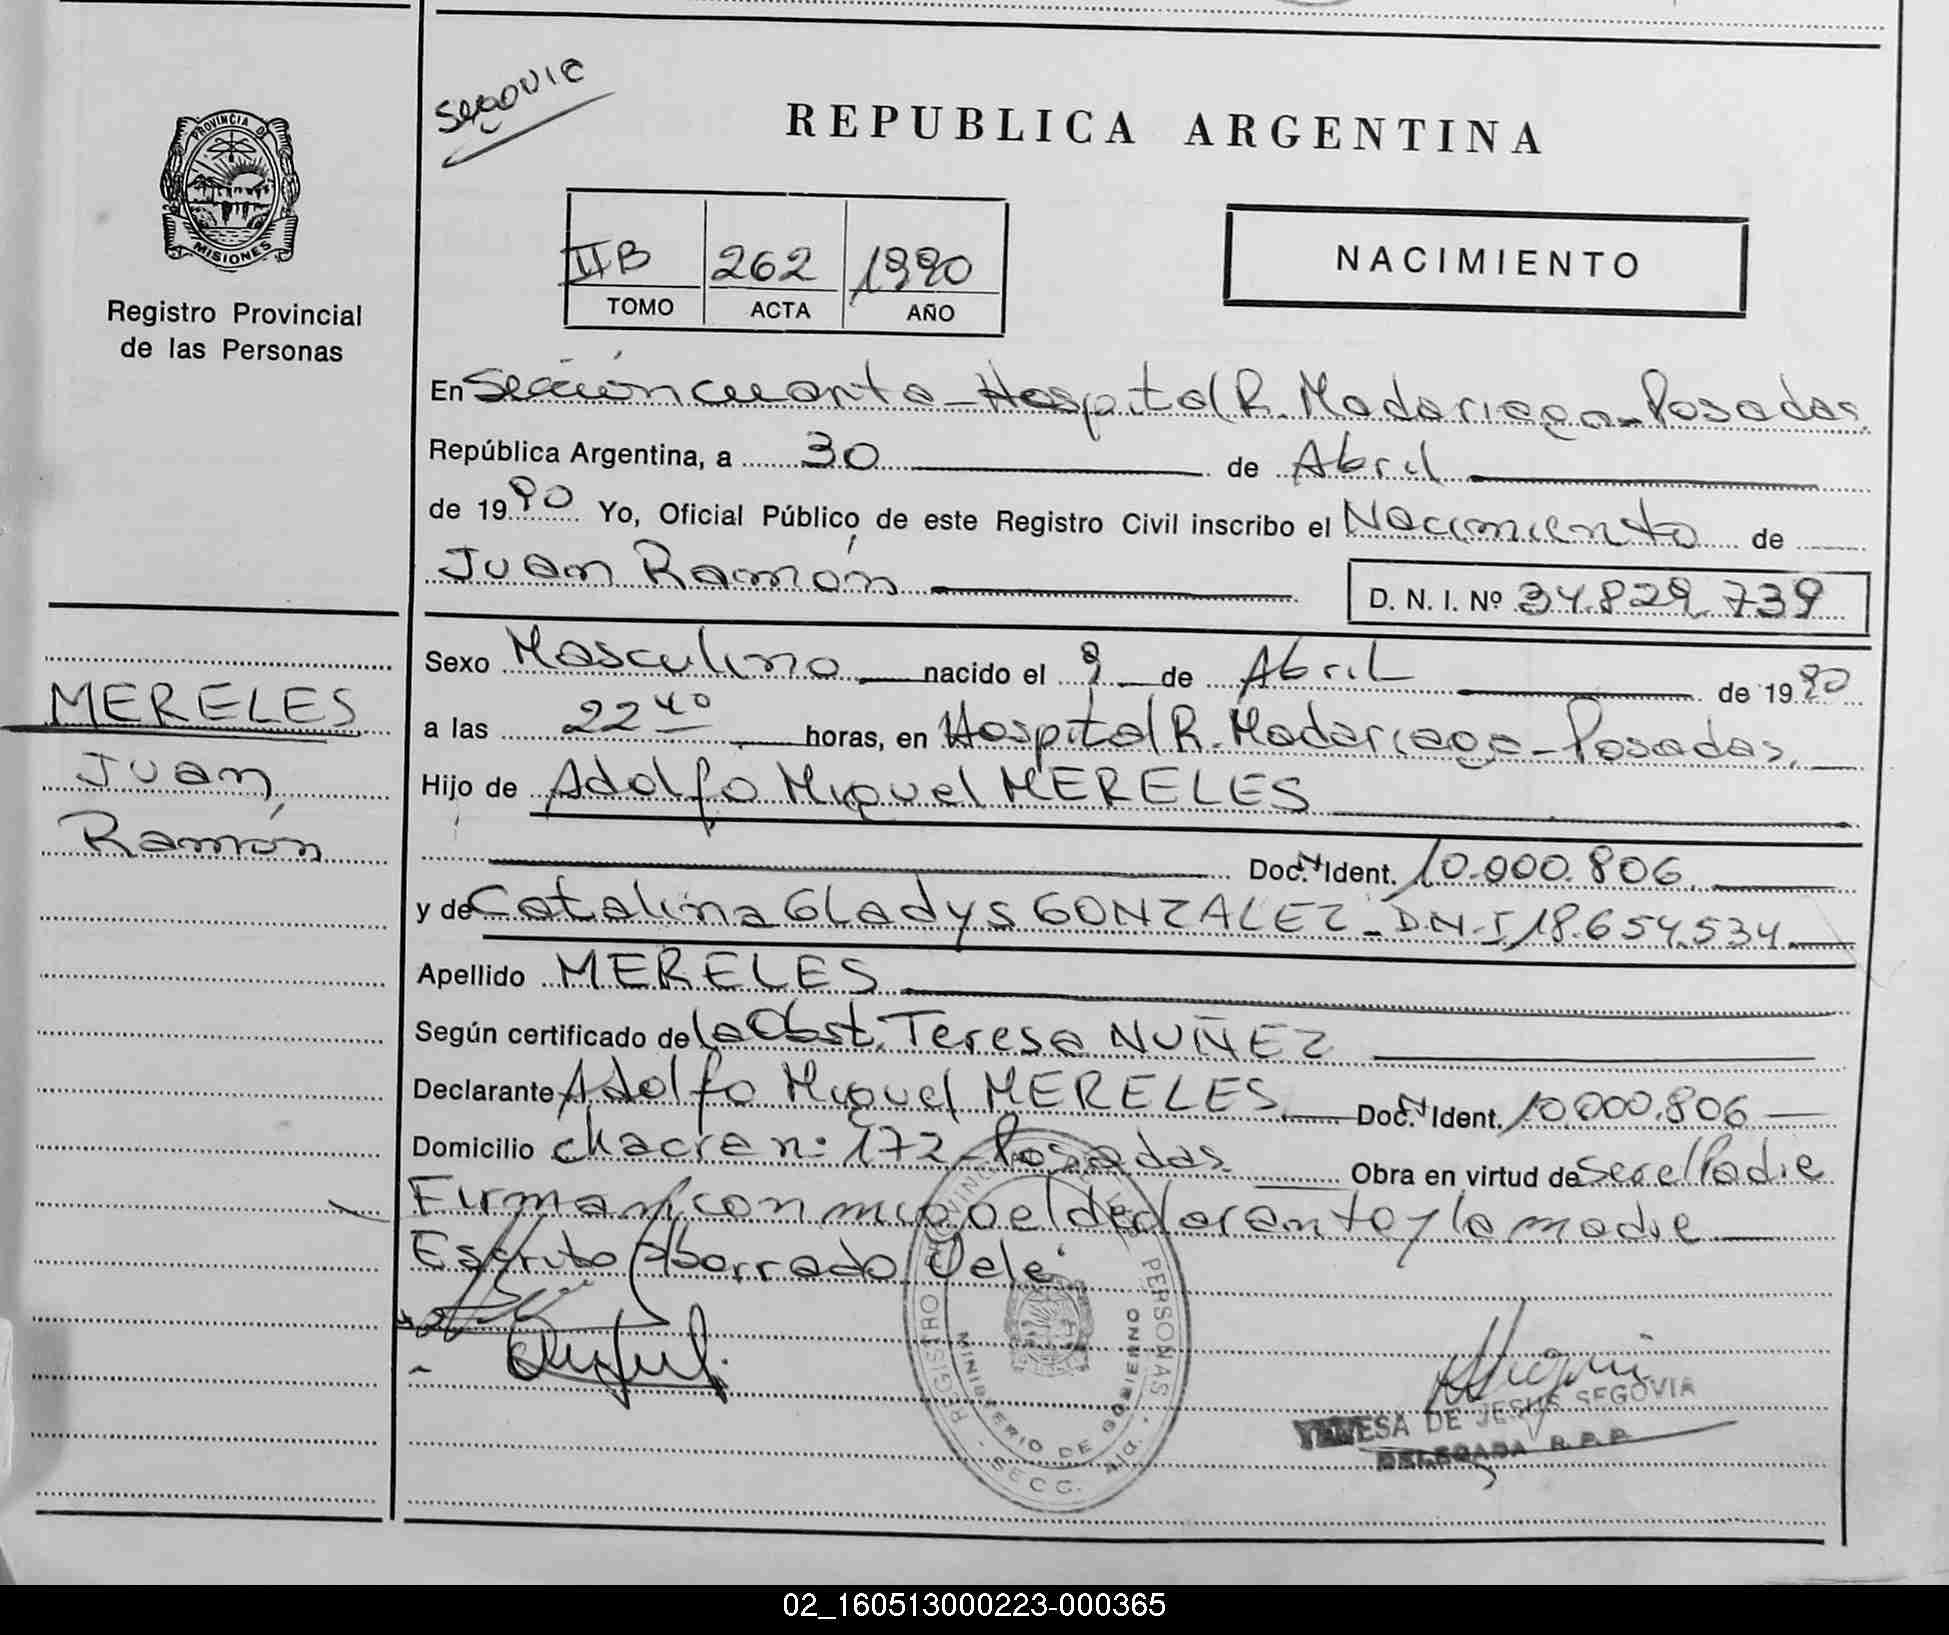 SEGOVIA
REPUBLICA ARGENTINA
PROVINCIA D
MISIONES
Registro Provincial
de las Personas
IIB 262 1990
TOMO ACTA AÑO
NACIMIENTO
En Sección cuarta - Hospital R. Madariaga - Posadas.
República Argentina, a 30 de Abril
de 1990 Yo, Oficial Público de este Registro Civil inscribo el Nacimiento de
Juan Ramón D. N. I. Nº 34.829.739
Sexo Masculino nacido el 9 de Abril de 1990
MERELES
a las 22 40 horas, en Hospital R. Madariaga - Posadas.
Juan
Hijo de Adolfo Miguel MERELES
Ramón
Doc. N Ident. 10.000.806
y de Catalina Gladys GONZALEZ - D.N.I 18.654.534
Apellido MERELES
Según certificado de la Obst. Teresa NUÑEZ
Declarante Adolfo Miguel MERELES Doc. N Ident. 10.000.806
Domicilio chacra nº 172 - Posadas Obra en virtud de ser el Padre
Firman conmigo el declarante y la madre
Escrito s/borrado Vale
REGISTRO PROVINCIAL DE LAS PERSONAS
MINISTERIO DE GOBIERNO
SECC. 4ta.
TERESA DE JESUS SEGOVIA
DELEGADA R.P.P.
02_160513000223-000365